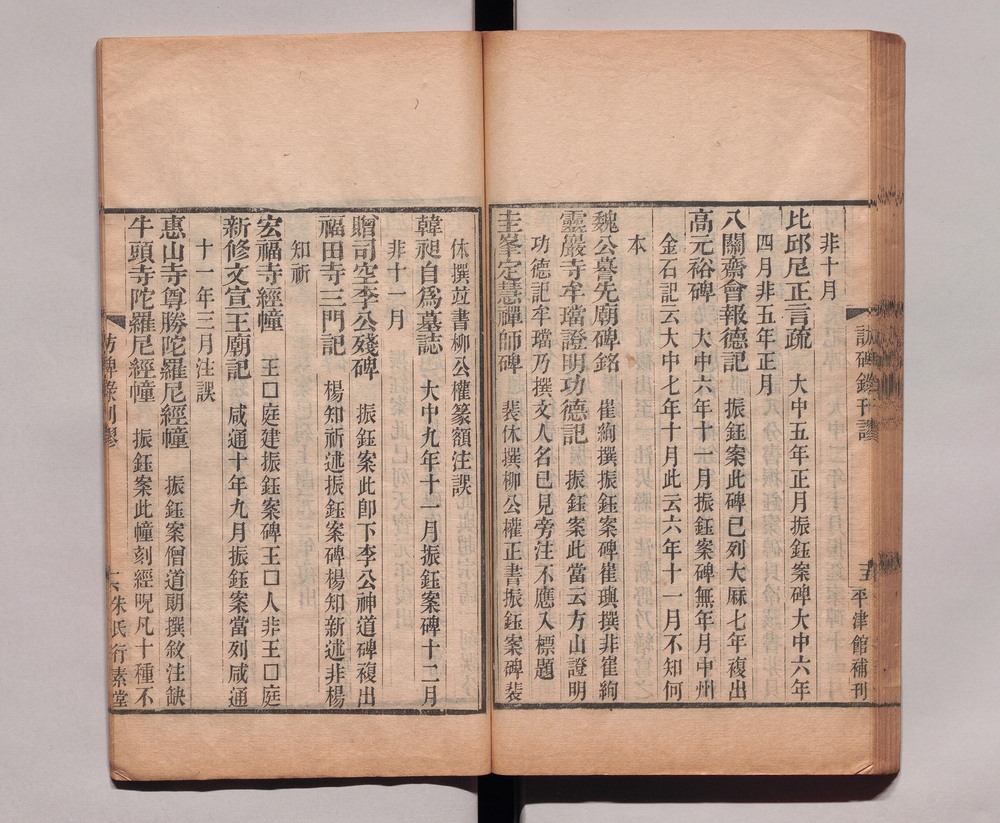 訪碑錄刊謬
五
平津館補刊
非十月
比邱尼正言疏 大中五年正月振鈺案碑大中六年
四月非五年正月
八關齋會報德記 振鈺案此碑已列大厤七年複出
高元裕碑 大中六年十一月振鈺案碑無年月中州
金石記云大中七年十月此云六年十一月不知何
本
魏公暮先廟碑銘 崔絢撰振鈺案碑崔璵撰非崔絢
靈巖寺牟璫證明功德記 振鈺案此當云方山證明
功德記牟璫乃撰文人名已見旁注不應入標題
圭峯定慧禪師碑 裴休撰柳公權正書振鈺案碑裴
休撰竝書柳公權篆額注誤
韓昶自爲墓誌 大中九年十一月振鈺案碑十二月
非十一月
贈司空李公殘碑 振鈺案此卽下李公神道碑複出
福田寺三門記 楊知祈述振鈺案碑楊知新述非楊
知祈
宏福寺經幢 王囗庭建振鈺案碑王囗人非王囗庭
新修文宣王廟記 咸通十年九月振鈺案當列咸通
十一年三月注誤
惠山寺尊勝陀羅尼經幢 振鈺案僧道期撰敘注缺
牛頭寺陀羅尼經幢 振鈺案此幢刻經呪凡十種不
訪碑錄刊謬
六
朱氏行素堂